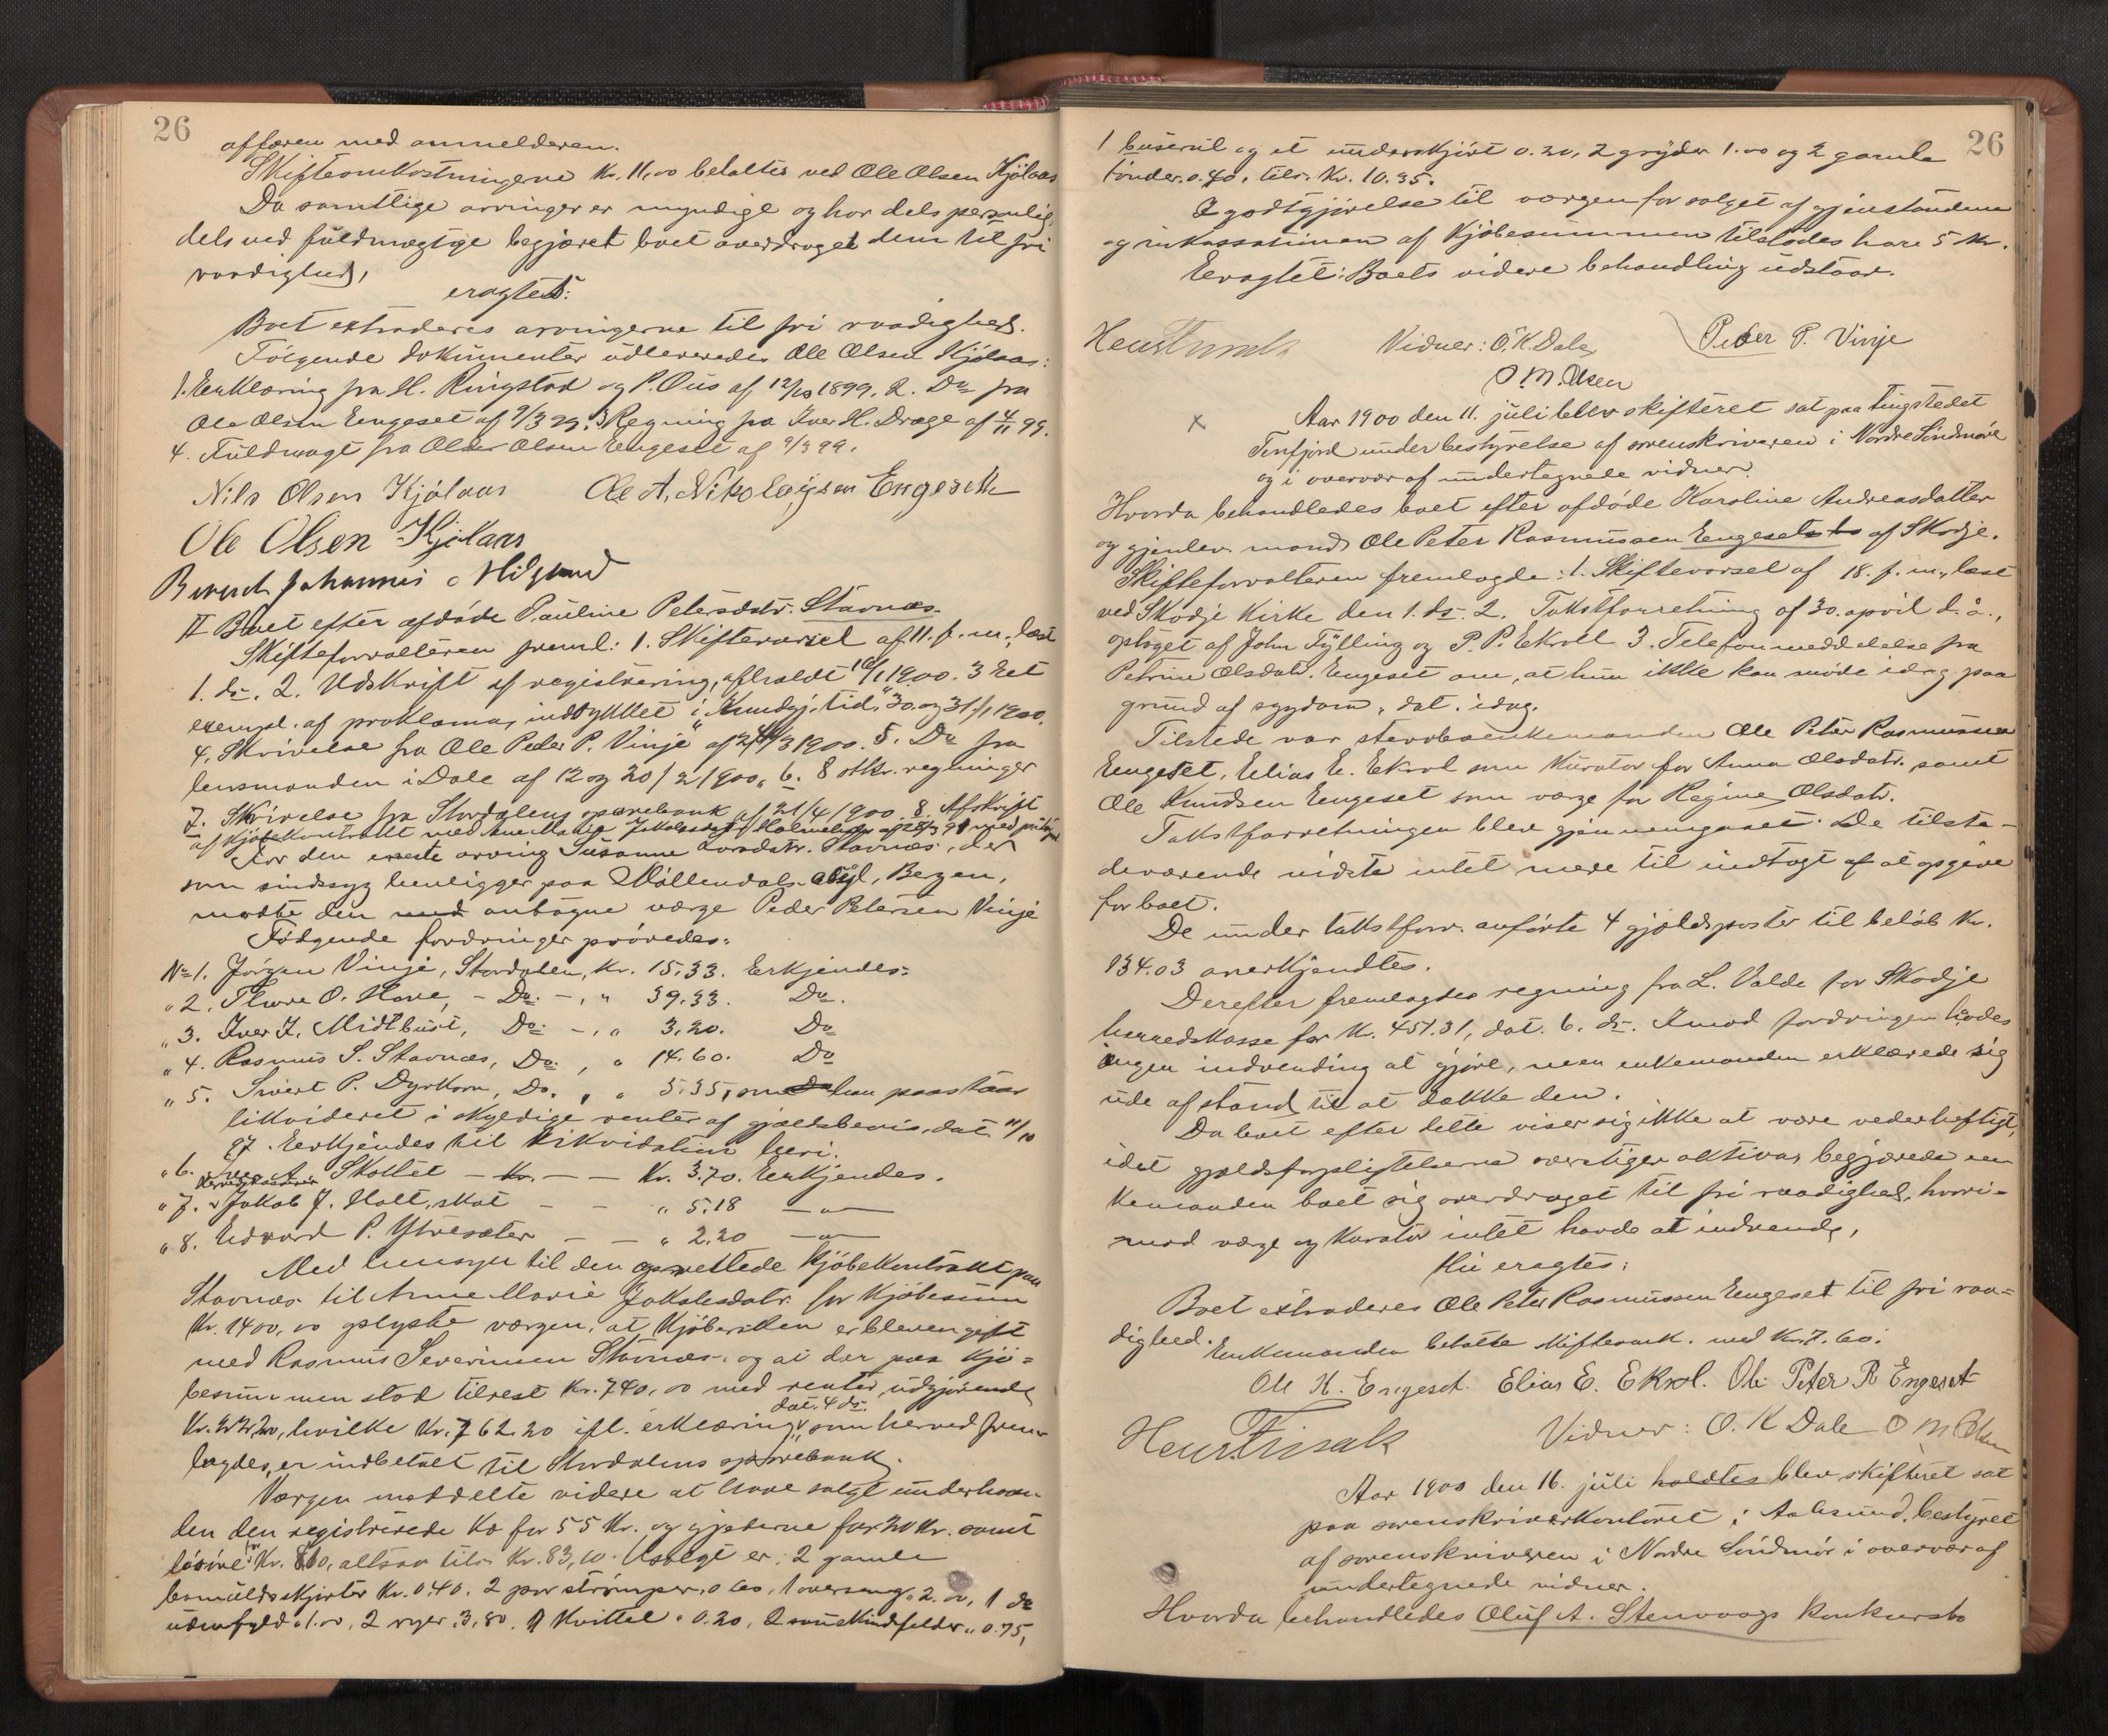 26
affæren med anmelderen.
Skifteomkostningerne kr. 11,00 betaltes ved Ole Olsen Kjølaas
Da samtlige arvinger er myndige og har dels personlig,
dels ved fuldmægtige begjæret boet overdraget dem til fri
raadighed,
eragtes:
Boet extraderes arvingerne til fri raadighed.
Følgende dokumenter udleveredes Ole Olsen Kjølaas:
1. Erklæring fra H. Ringstad og P. Ous af 12/10 1899. 2. Do fra
Ole Olsen Engeset af 9/3 99. 3 Regning fra Iver H. Drage af 4/11 99.
4. Fuldmagt fra Olsen Engeset af 9/3 99.
Nils Olsen Kjölaas Ole A. Nikolaysen Engeseth
Ole Olsen Kjölaas
Berent Johannes
II Boet efter afdøde Pauline Petersdatr. Stavnæs.
Skifteforvalteren freml: 1. Skiftevarsel af 11. f. m., læst
1. ds. 2. Udskrift af registrering, afholdt 10/1 1900. 3 Et
exempl. af proklama, indrykket i "Kundgj. tid." 30. og 31/1 1900.
4. Skrivelse fra Ole Peder P. Vinje af 24/3 1900. 5. Do fra
lensmanden i Dale af 12 og 20/2 1900. 6. 8 stkr. regninger
7. Skrivelse fra Stordalens sparebank af 21/4 1900. 8. Afskrift
af kjøbekontrakt med Ane Marie Jakobsdatr.
For den eneste arving Susanne Larsdatr. Stavnæs, der
som sindssyg henligger paa Møllendals asyl, Bergen,
mødte den antagne værge Peder Petersen Vinje
Følgende fordringer prøvedes:
No 1. Jørgen Vinje, Stordalen, kr. 15,33. Erkjendes:
" 2. Thore O. Hove, - Do. -, " 39,33. Do.
" 3. Iver I. Midtbust, Do. -, " 3,20. Do
" 4. Rasmus S. Stavnæs, Do. , " 14.60. Do
" 5. Sivert P. Dyrkorn, Do. , " 5.35, som han paastaar
likvideret i skyldige renter af gjældsbevis, dat. 11/10
97. Erkjendes til likvidation heri.
" 6. Iver A. Skottet - - - kr. 3.70. Erkjendes.
" 7. Jakob J. Holt, skat - - " 5.18 - " -
" 8. Edvard P. Ytresæter - - " 2.20 - " -
Med hensyn til den oprettede kjøbekontrakt paa
Stavnæs til Anne Marie Jakobsdatr. for kjøbesum
kr. 1400,00 oplyste værgen, at kjøbersken er bleven gift
med Rasmus Severinsen Stavnæs, og at der paa kjø=
besummen stod tilrest kr. 740,00 med renter, udgjørende
kr. 22,20, hvilke kr. 762.20 ifl. erklæring, dat. 4 ds. som herved frem-
lagdes, er indbetalt til Stordalens sparebank.
Værgen meddelte videre at have solgt underhaan-
den den registrerede ko for 55 kr. og gjederne for 20 kr. samt
løsøre for kr. 8.10, altsaa tils. kr. 83,10. Usolgt er: 2 gamle
bomuldsskjorter kr. 0.40. 2 par strømper, 0.60, 1 overseng, 2.00, 1 do
udenfyld 1.00, 2 ryer 3,80, 1 kvittel 0.20, 2 saueskindfelder " 0.75,
26
1 buserul og et underskjørt 0.20, 2 gryder 1.00 og 2 gamle
tønder 0.40. tils. kr. 10.35.
I godtgjørelse til værgen for salget af gjenstandene
og inkassationen af kjøbesummen tilstodes ham 5 kr.
Eragtet: Boets videre behandling udstaar.
Vidner: O. K. Dale Peder P. Vinje
O. M. Olsen
x Aar 1900 den 11. juli blev skifteret sat paa tingstedet
Tenfjord under bestyrelse af sorenskriveren i Nordre Søndmøre
og i overvær af undertegnede vidner.
Hvorda behandledes boet efter afdøde Karoline Andreasdatter
og gjenlev. mand Ole Peter Rasmussen Engesets bo af Skodje.
Skifteforvalteren fremlagde: 1. Skiftevarsel af 18. f. m., læst
ved Skodje kirke den 1. ds. 2. Takstforretning af 30. april d. a.,
optaget af John Tylling og P. P. Ekroll 3. Telefonmeddelelse fra
Petrine Olsdatr. Engeset om, at hun ikke kan møde idag paa
grund af sygdom, dat. idag.
Tilstede var stervboenkemanden Ole Peter Rasmussen
Engeset, Elias E. Ekrol som kurator for Anna Olsdatr. samt
Ole Knudsen Engeset som værge for Regine Olsdatr.
Takstforretningen blev gjennemgaaet. De tilste-
deværende vidste intet mere til indtægt at opgive
for boet.
De under takstforr. anførte 4 gjældsposter til beløb kr.
134.03 anerkjendtes.
Derefter fremlagdes regning fra L. Valde for Skodje
herredskasse for kr. 451.31, dat. 6. ds. Imod fordringen havdes
ingen indvending at gjøre, men enkemanden erklærede sig
ude af stand til at dække den.
Da boet efter dette viser sig ikke at være vederheftigt,
idet gjældsforpligtelserne overstiger aktiva, begjærede en-
kemanden boet sig overdraget til fri raadighed, hvori-
mod værge og kurator intet havde at indvende,
thi eragtes:
Boet extraderes Ole Peter Rasmussen Engeset til fri raa=
dighed. Enkemanden betalte skifteomk. med kr. 7.60.
Ole K. Engeset. Elias E. Ekrol. Ole Peter R Engeset
Vidner: O. K Dale O M Olsen
Aar 1900 den 16. juli holdtes blev skifteret sat
paa sorenskriverkontoret i Aalesund, bestyret
af sorenskriveren i Nordre Søndmør i overvær af
undertegnede vidner.
Hvorda behandledes Oluf A. Stenvaags konkursbo